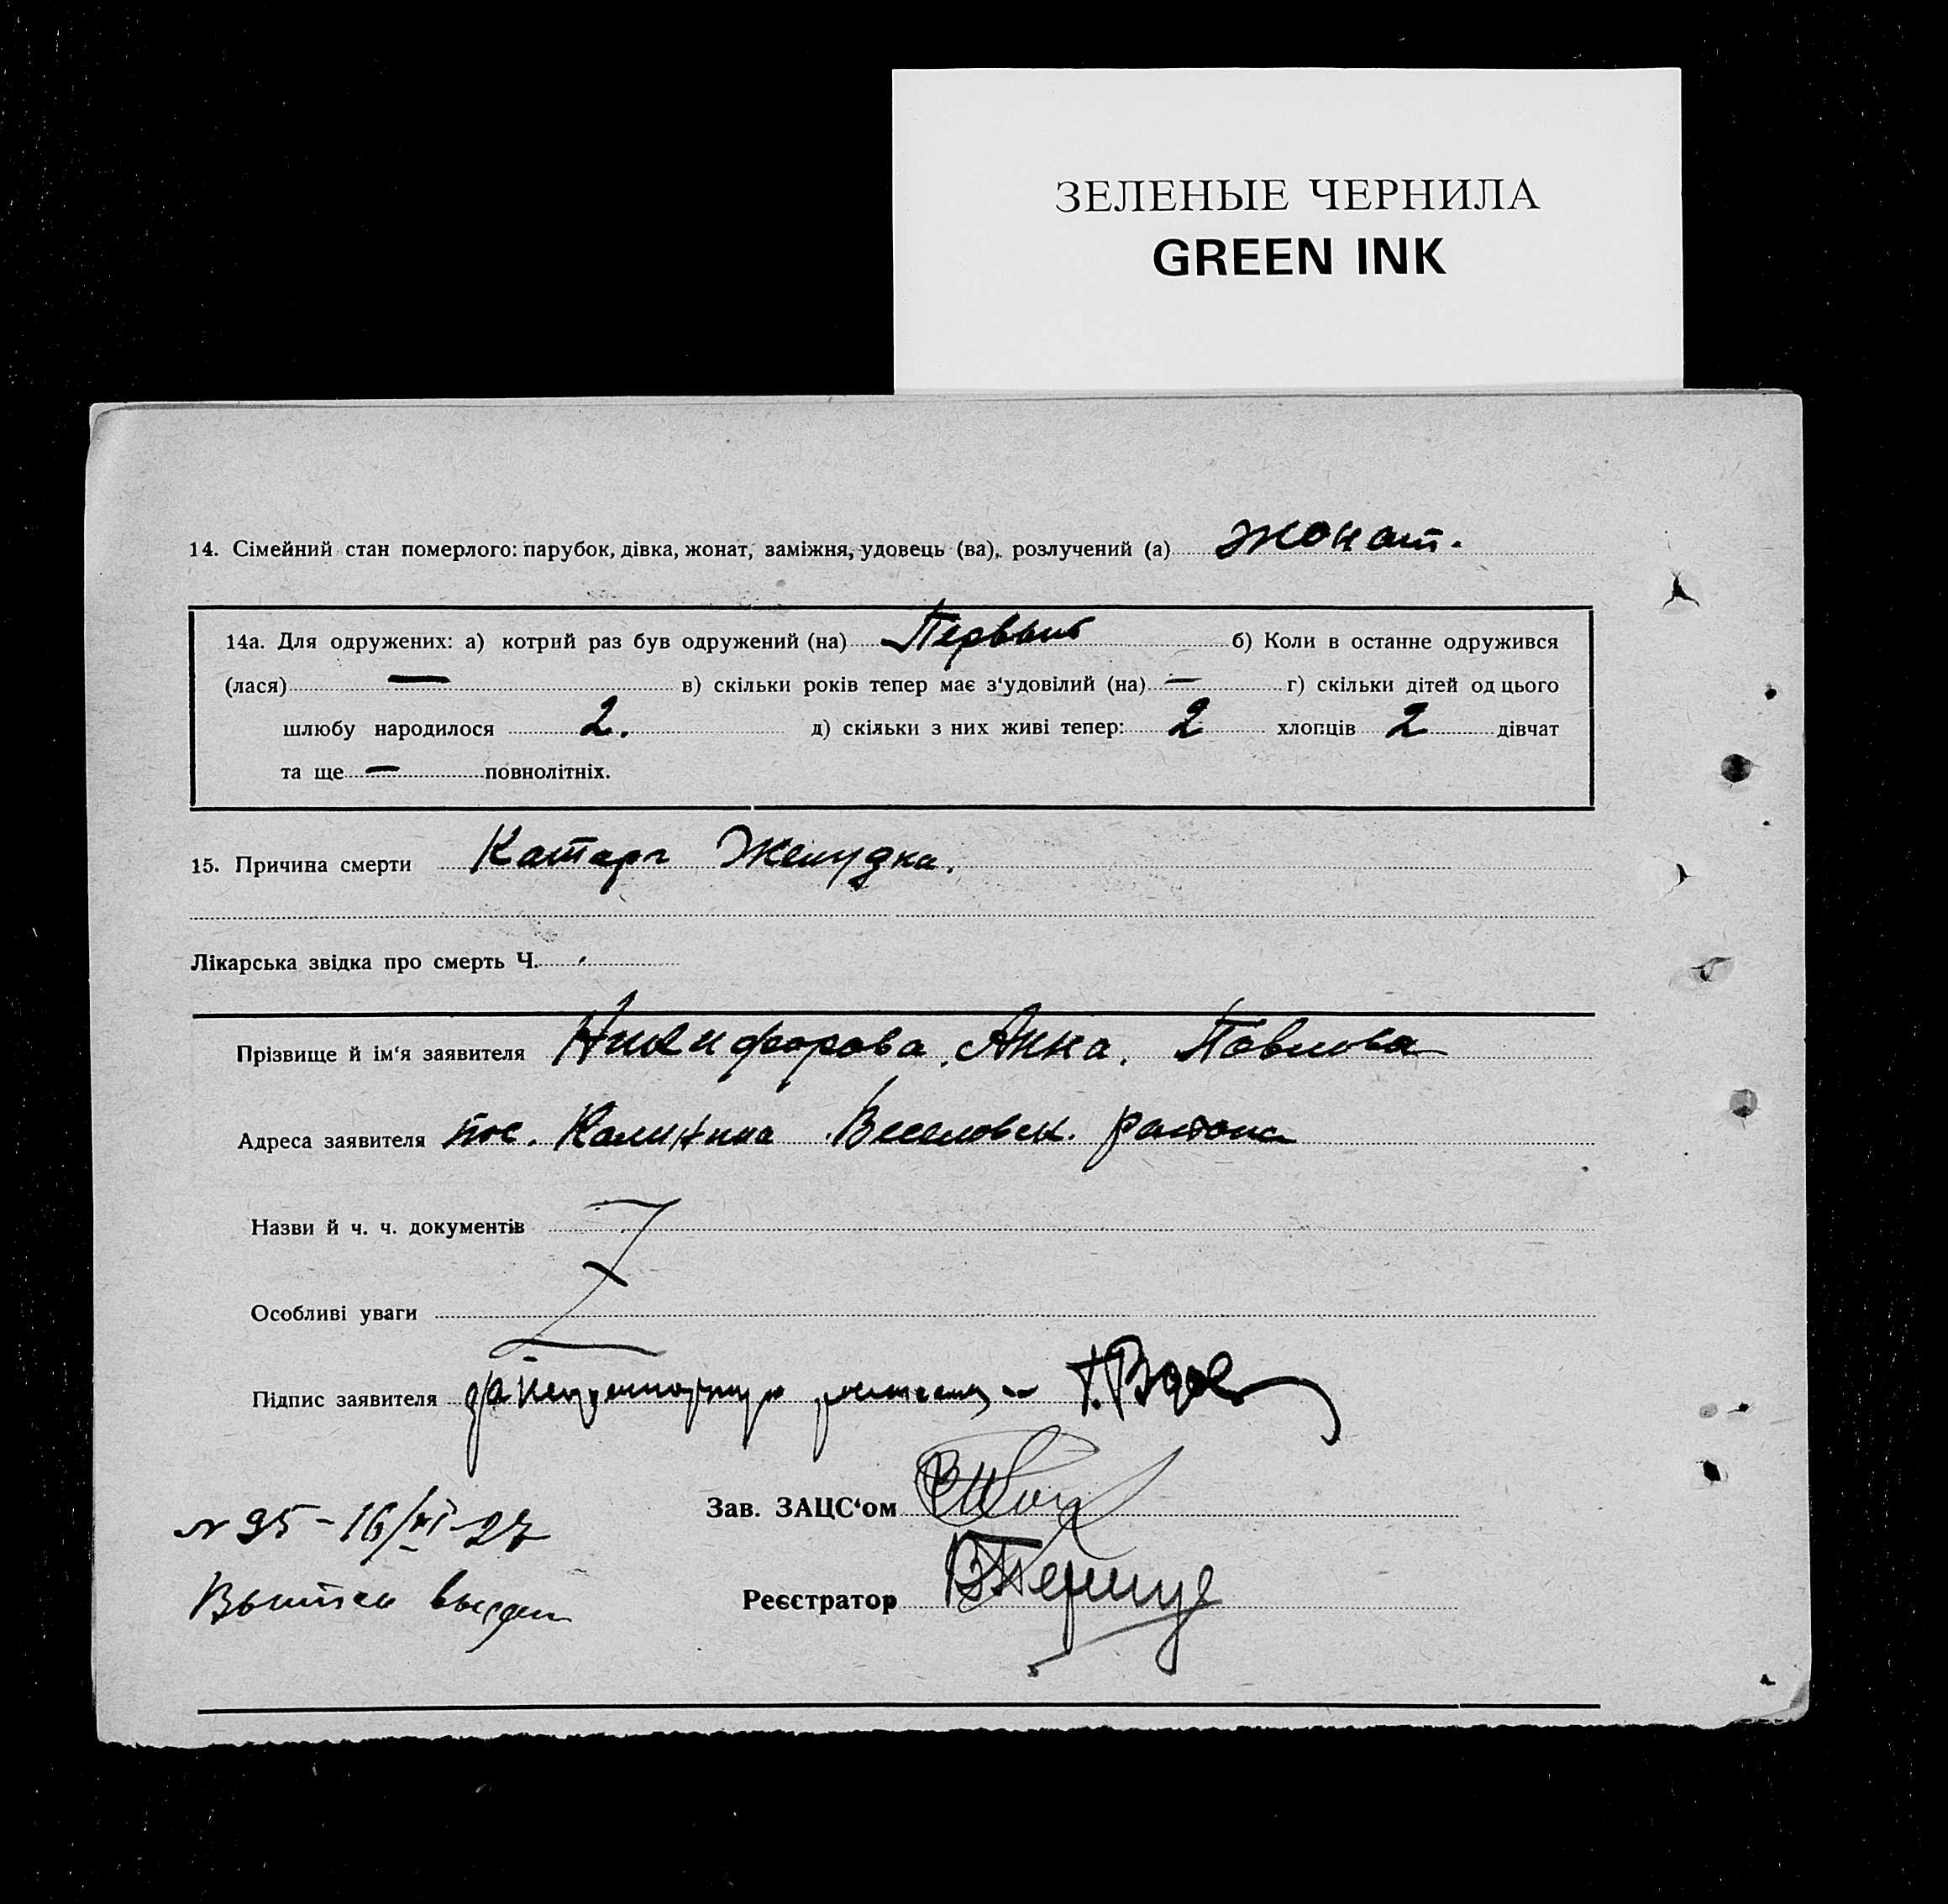 ЗЕЛЕНЫЕ ЧЕРНИЛА
GREEN INK
14. Сімейний стан померлого: парубок, дівка, жонат, заміжня, удовець (ва), розлучений (а) жонат.
14а. Для одружених: а) котрий раз був одружений (на) Первый б) Коли в останне одружився
(лася) — в) скільки років тепер має з‘удовілий (на) — г) скільки дітей од цього
шлюбу народилося 2. д) скільки з них живі тепер: 2 хлопців 2 дівчат
та ще — повнолітніх.
15. Причина смерти Катарг Желудка.
Лікарська звідка про смерть Ч.
Прізвище й ім‘я заявителя Никифорова Анна. Павлова
Адреса заявителя пос. Калинина Веселовск. района
Назви й ч. ч. документів
Особливі уваги
Підпис заявителя
Зав. ЗАЦС‘ом
N 95 - 16/VI-27
Реєстратор